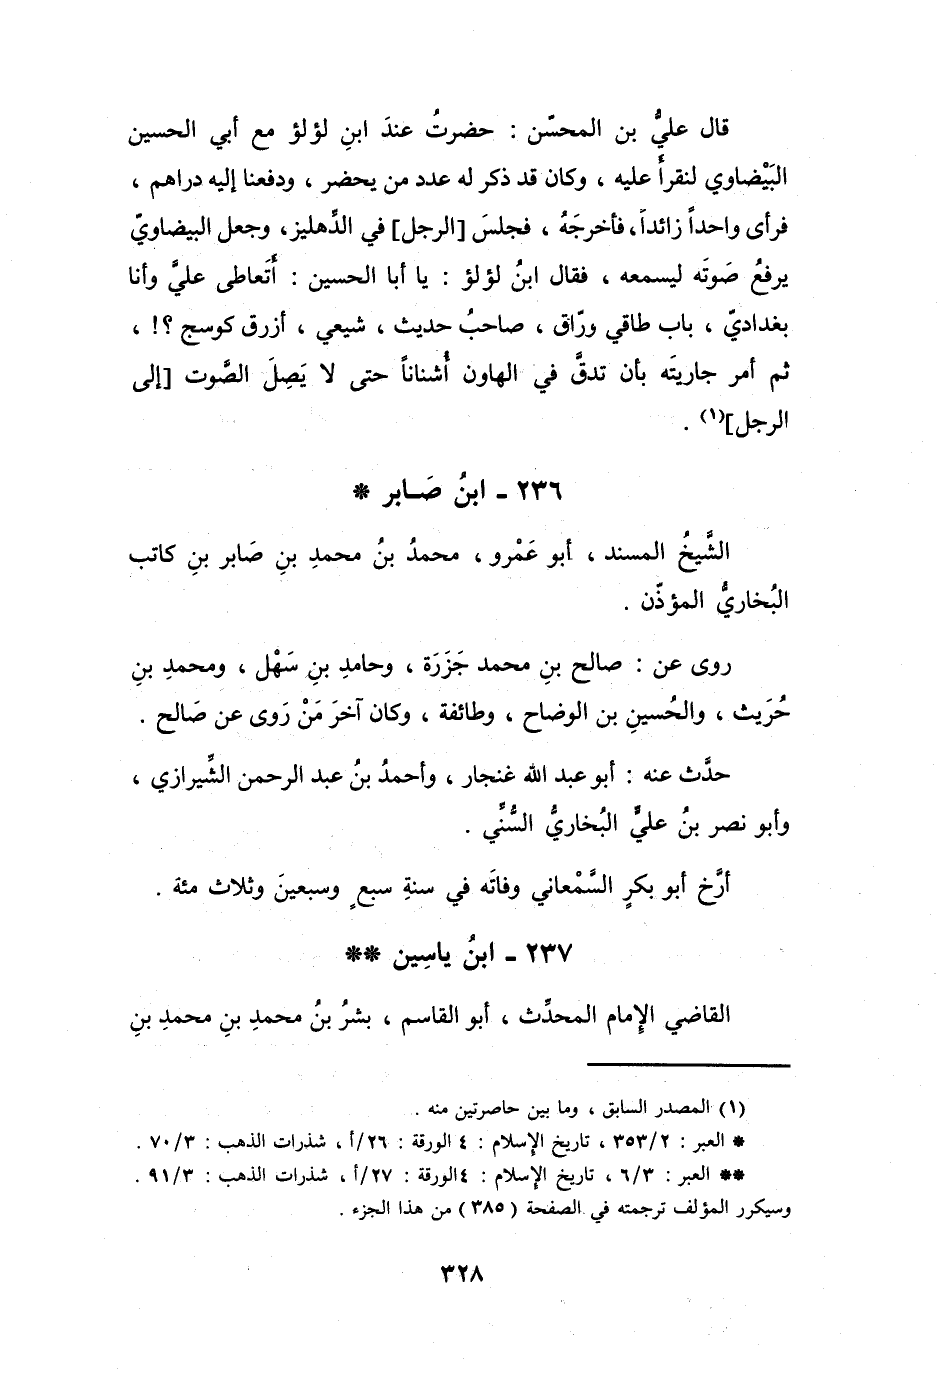 قال عليُّ بن المحسّن : حضرتُ عندَ ابنِ لؤلؤ مع أبي الحسين
البَيْضاوي لنقرأ عليه ، وكان قد ذكر له عدد من يحضر ، ودفعنا إليه دراهم ،
فرأى واحداً زائداً، فأخرجَهُ ، فجلسَ [الرجل] في الدِّهليز، وجعل البيضاويّ
يرفعُ صَوتَه ليسمعه ، فقال ابنُ لؤلؤ : يا أبا الحسين : أَتَعاطى عليَّ وأنا
بغداديّ ، باب طاقي ورّاق ، صاحبُ حديث ، شيعي ، أزرق كوسج ؟! ،
ثم أمر جاريتَه بأن تدقَّ في الهاون أُشناناً حتى لا يَصِلَ الصَّوت [إلى
الرجل](١) .
٢٣٦ - ابنُ صَابر *
الشَّيخُ المسند ، أبو عَمْرو ، محمدُ بنُ محمدِ بنِ صَابر بنِ كاتب
البُخاريُّ المؤذّن .
روى عن : صالح بنِ محمد جَزَرَة ، وحامدِ بنِ سَهْل ، ومحمدِ بنِ
حُرَيث ، والحُسينِ بن الوضاح ، وطائفة ، وكان آخرَ مَنْ رَوى عن صَالح .
حدَّث عنه : أبو عبد الله غنجار ، وأحمدُ بنُ عبد الرحمن الشِّيرازي ،
وأبو نصر بنُ عليٍّ البُخاريُّ السُّنِّي .
أرَّخ أبو بكرٍ السَّمْعاني وفاتَه في سنةِ سبعٍ وسبعينَ وثلاث مئة .
٢٣٧ - ابنُ ياسِين **
القاضي الإمام المحدِّث ، أبو القاسم ، بشرُ بنُ محمدِ بنِ محمدِ بنِ
(١) المصدر السابق ، وما بين حاصرتين منه .
* العبر : ٣٥٣/٢ ، تاريخ الإسلام : ٤ الورقة : ٢٦/أ ، شذرات الذهب : ٧٠/٣ .
** العبر : ٦/٣ ، تاريخ الإسلام : ٤الورقة : ٢٧/أ ، شذرات الذهب : ٩١/٣ .
وسيكرر المؤلف ترجمته في الصفحة (٣٨٥) من هذا الجزء .
٣٢٨